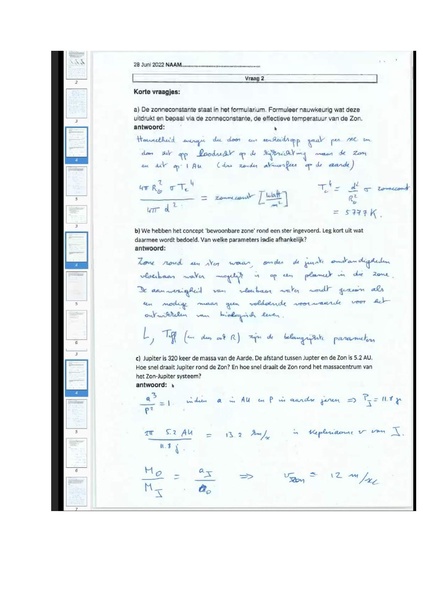 28 Juni 2022 NAAM
Vraag 2
Korte vraagjes:
a) De zonneconstante staat in het formularium. Formuleer nauwkeurig wat deze
uitdrukt en bepaal via de zonneconstante, de effectieve temperatuur van de Zon.
antwoord:
Hoeveelheid energie die door een oppervlak gaat per sec en
dan dit op loodrecht op de richting naar de zon
en dit op 1 AU (dus zonder atmosfeer op de aarde)
4π R² σ T⁴ / 4π d² = zonneconst [Watt/m²]
= 5777 K.
b) We hebben het concept 'bewoonbare zone' rond een ster ingevoerd. Leg kort uit wat
daarmee wordt bedoeld. Van welke parameters isdie afhankelijk?
antwoord:
Zone rond een ster waar, onder de juiste omstandigheden
vloeibaar water mogelijk is op een planeet in die zone.
De aanwezigheid van vloeibaar water wordt gezien als
een nodige maar geen voldoende voorwaarde voor het
ontwikkelen van biologisch leven.
L, Teff (en dus ook R) zijn de belangrijkste parameters
c) Jupiter is 320 keer de massa van de Aarde. De afstand tussen Jupter en de Zon is 5.2 AU.
Hoe snel draait Jupiter rond de Zon? En hoe snel draait de Zon rond het massacentrum van
het Zon-Jupiter systeem?
antwoord:
a³/P² = 1 indien a in AU en P in aardse jaren ⟹ P_J = 11.8 j
2π 5.2 AU / 11.8 j = 13.2 km/s is Kepleriaanse v van J.
M⊙/M_J = a_J/a⊙ ⟹ v_zon = 12 m/sec